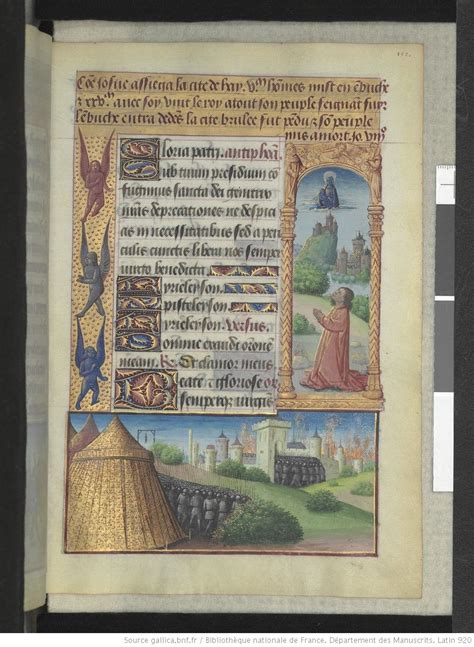 Cõe iosue assiega la cite de hay. Vᵐ hõmes mist en ẽbuche
& xxvᵐ avec soy, vint le roy a tout son peuple feignãt fuir
lẽbuche entra dedẽs la cite brulee fut pẽdu & sõ peuple
mis a mort. Jo. viijº
Gloria patri. antiphõa.
Sub tuum presidium cõ
fugimus sancta dei genitrix
nr̃as deprecationes ne despicias
in necessitatibus sed a peri
culis cunctis libera nos semper
virgo benedicta.
Kyrieleyson.
Xpisteleyson.
Kyrieleyson. Versus.
Domine exaudi orõnem
meam. R. Et clamor meus
Beate et gloriose
semperque virginis
Source gallica.bnf.fr / Bibliothèque nationale de France. Département des Manuscrits. Latin 920